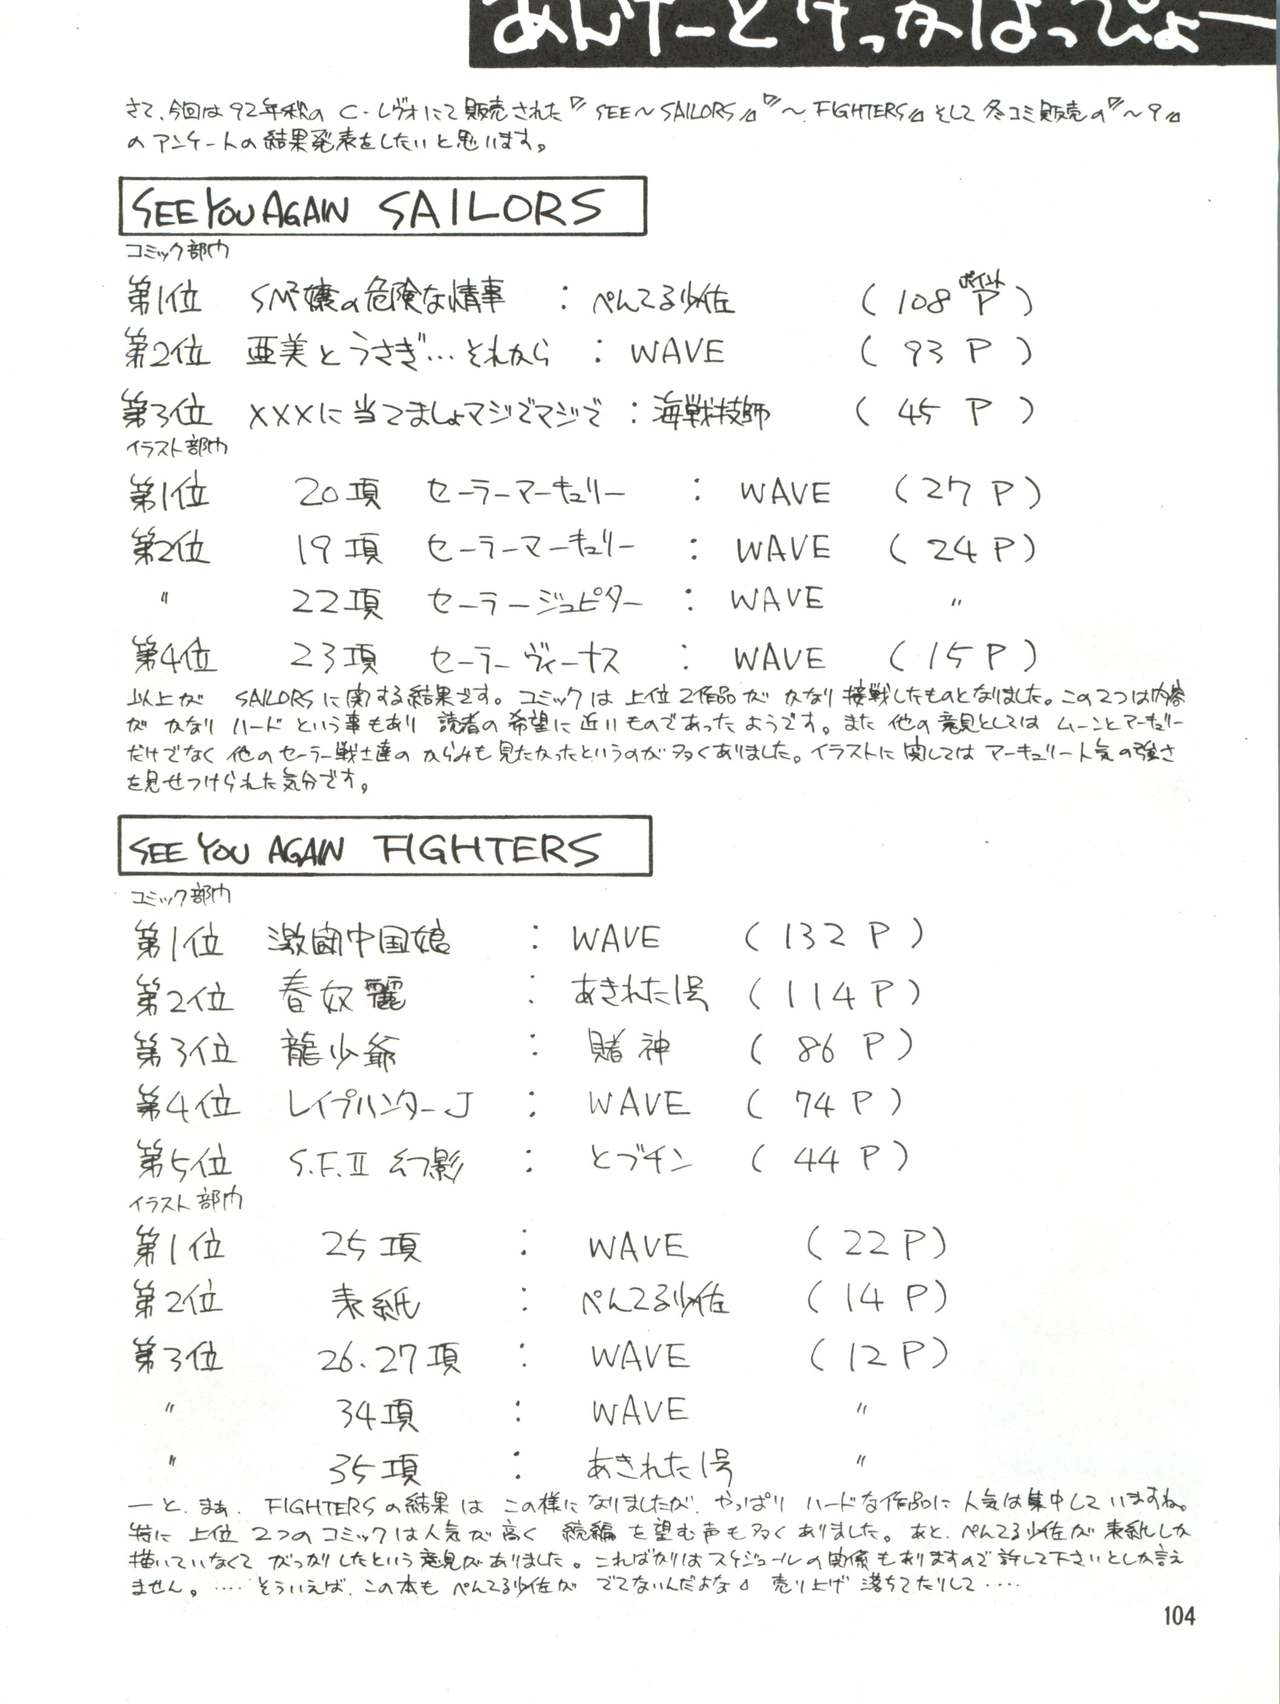 あんけーとけっかはっぴょー
さて、今回は92年秋の C・レヴォにて販売された『SEE～SAILORS』『～FIGHTERS』そして冬コミ販売の『～9』
のアンケートの結果発表をしたいと思います。
SEE YOU AGAIN SAILORS
コミック部門
第1位 SM嬢の危険な情事 : ぺんてる少佐 (108 P ポイント)
第2位 亜美とうさぎ…それから : WAVE (93 P)
第3位 XXXに当てましょマジでマジで : 海戦技師 (45 P)
イラスト部門
第1位 20項 セーラーマーキュリー : WAVE (27 P)
第2位 19項 セーラーマーキュリー : WAVE (24 P)
〃 22項 セーラージュピター : WAVE 〃
第4位 23項 セーラーヴィーナス : WAVE (15 P)
以上が SAILORSに関する結果です。コミックは上位2作品が かなり接戦したものとなりました。この2つは内容
が かなり ハード という事もあり 読者の希望に近いものであったようです。また他の意見としては ムーンとマーキュリー
だけでなく他のセーラー戦士達の からみも見たかったというのが多くありました。イラストに関しては マーキュリー人気の強さ
を見せつけられた気分です。
SEE YOU AGAIN FIGHTERS
コミック部門
第1位 激闘中国娘 : WAVE (132 P)
第2位 春奴麗 : あきれた1号 (114 P)
第3位 龍少爺 : 賭神 (86 P)
第4位 レイプハンターJ : WAVE (74 P)
第5位 S.F.II 幻影 : とブチン (44 P)
イラスト部門
第1位 25項 : WAVE (22 P)
第2位 表紙 : ぺんてる少佐 (14 P)
第3位 26.27項 : WAVE (12 P)
〃 34項 : WAVE 〃
〃 35項 : あきれた1号 〃
―と、まぁ、FIGHTERSの結果は この様になりましたが、やっぱり ハードな作品に人気は集中していますね。
特に 上位 2つのコミックは人気が高く 続編を望む声も多くありました。あと、ぺんてる少佐が 表紙しか
描いていなくて がっかりしたという意見がありました。こればかりはスケジュールの関係もありますので許して下さいとしか言え
ません。…… そういえば、この本も ぺんてる少佐が でてないんだよな。 売り上げ 落ちてたりして……
104